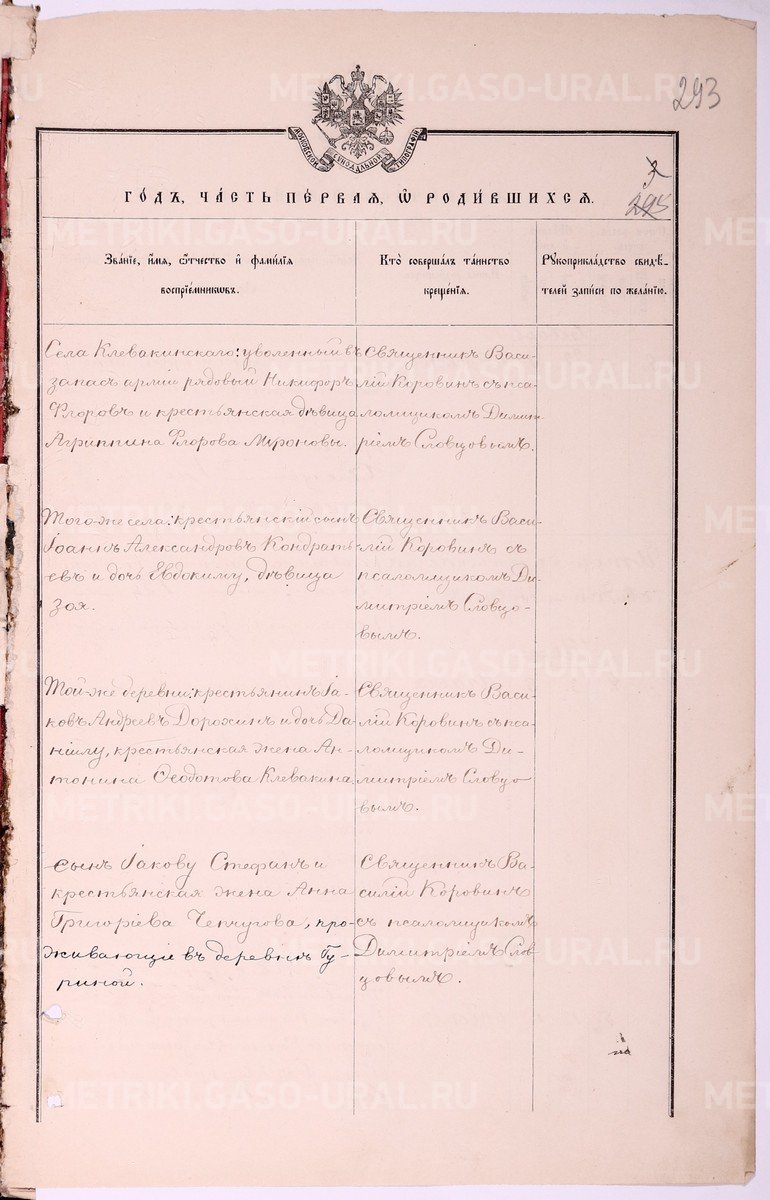 293
МОСКОВСКОЙ СѴНОДАЛЬНОЙ ТИПОГРАФІИ
295
ГО́ДЪ, ЧА́СТЬ ПЕ́РВАЯ, Ѡ҆ РОДИ́ВШИХСЯ.
Зва́ніе, и҆́мя, ѻ҆́тчество и҆ фами́лія
воспріе́мникѡвъ.
Кто̀ соверша́лъ та́инство
креще́нія.
Рꙋкоприкла́дство свидѣ́-
телей за́писи по жела́нію.
Села Клевакинскаго: уволенный въ
запасъ арміи рядовый Никифоръ
Флоровъ и крестьянская дѣвица
Агриппина Флорова Мироновы.
Священникъ Васи-
лій Коровинъ съ пса-
ломщикомъ Димит-
ріемъ Словцовымъ.
Того-же села: крестьянскій сынъ
Іоаннъ Александровъ Кондрать-
евъ и дочь Евдокиму, дѣвица
Зоя.
Священникъ Васи-
лій Коровинъ съ
псаломщикомъ Ди-
митріемъ Словцо-
вымъ.
Той-же деревни: крестьянинъ Іа-
ковъ Андреевъ Дорохинъ и дочь Да-
ніилу, крестьянская жена Ан-
тонина Ѳеодотова Клевакина.
Священникъ Васи-
лій Коровинъ съ пса-
ломщикомъ Ди-
митріемъ Словцо-
вымъ.
сынъ Іакову Стефанъ и
крестьянская жена Анна
Григоріева Чепчугова, про-
живающіе въ деревнѣ Гу-
риной.
Священникъ Ва-
силій Коровинъ
съ псаломщикомъ
Димитріемъ Слов-
цовымъ.
METRIKI.GASO-URAL.RU